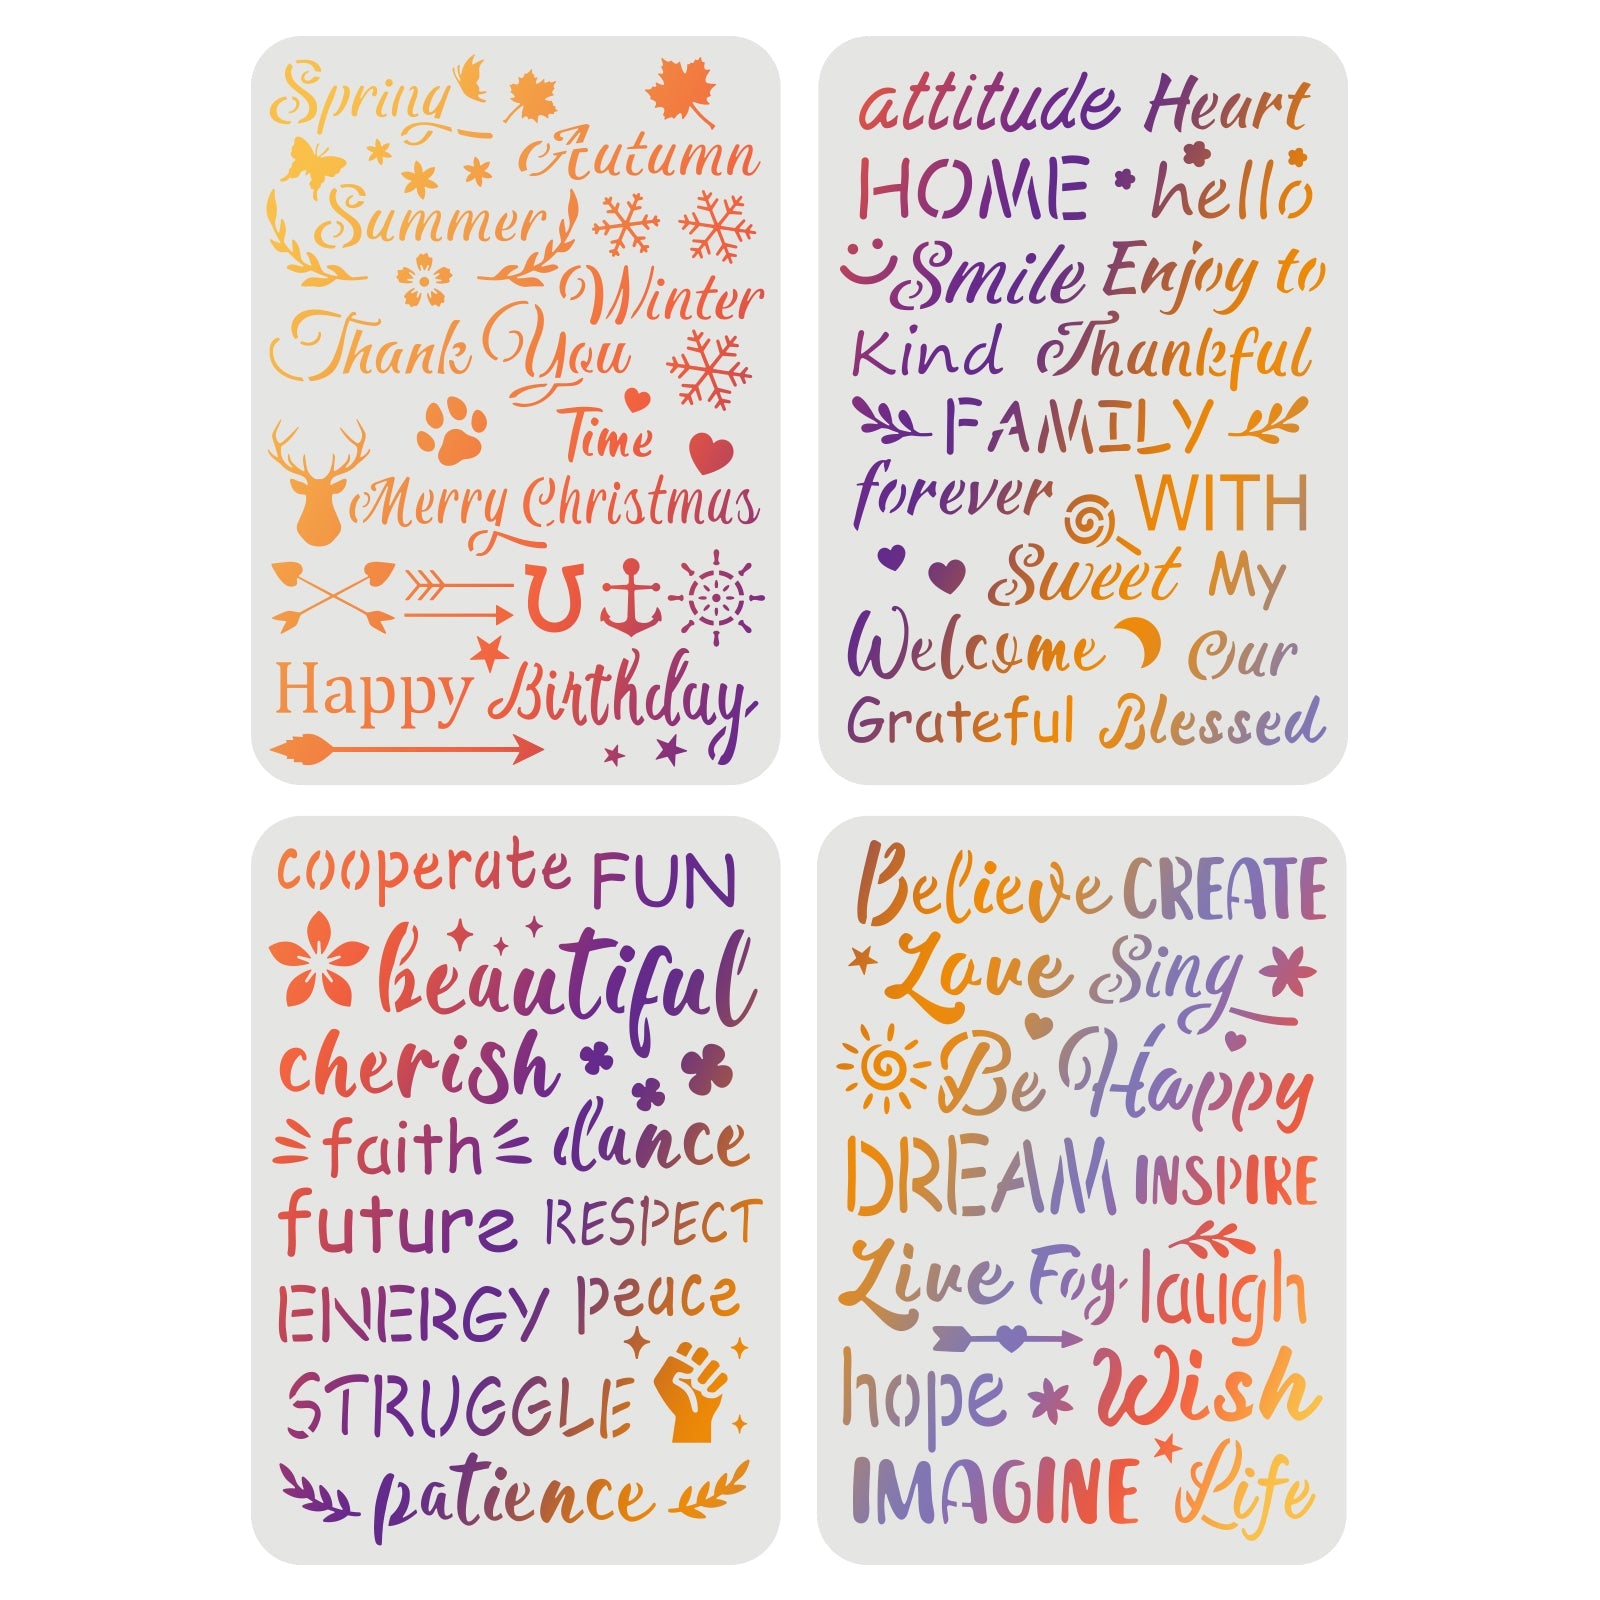 Spring
Autumn
Summer
Winter
Thank You
Time
Merry Christmas
Happy Birthday
attitude Heart
HOME hello
Smile Enjoy to
Kind Thankful
FAMILY
forever WITH
Sweet My
Welcome Our
Grateful Blessed
cooperate FUN
beautiful
cherish
faith dance
future RESPECT
ENERGY peace
STRUGGLE
patience
Believe CREATE
Love Sing
Be Happy
DREAM INSPIRE
Live Foy laugh
hope Wish
IMAGINE Life